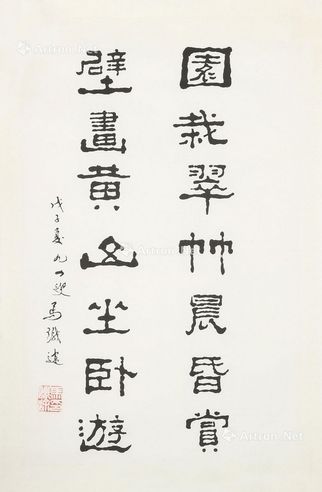 園栽翠竹晨昏賞
壁畫黄山坐卧遊
戊子夏九四叟馬識途
Artron.Net